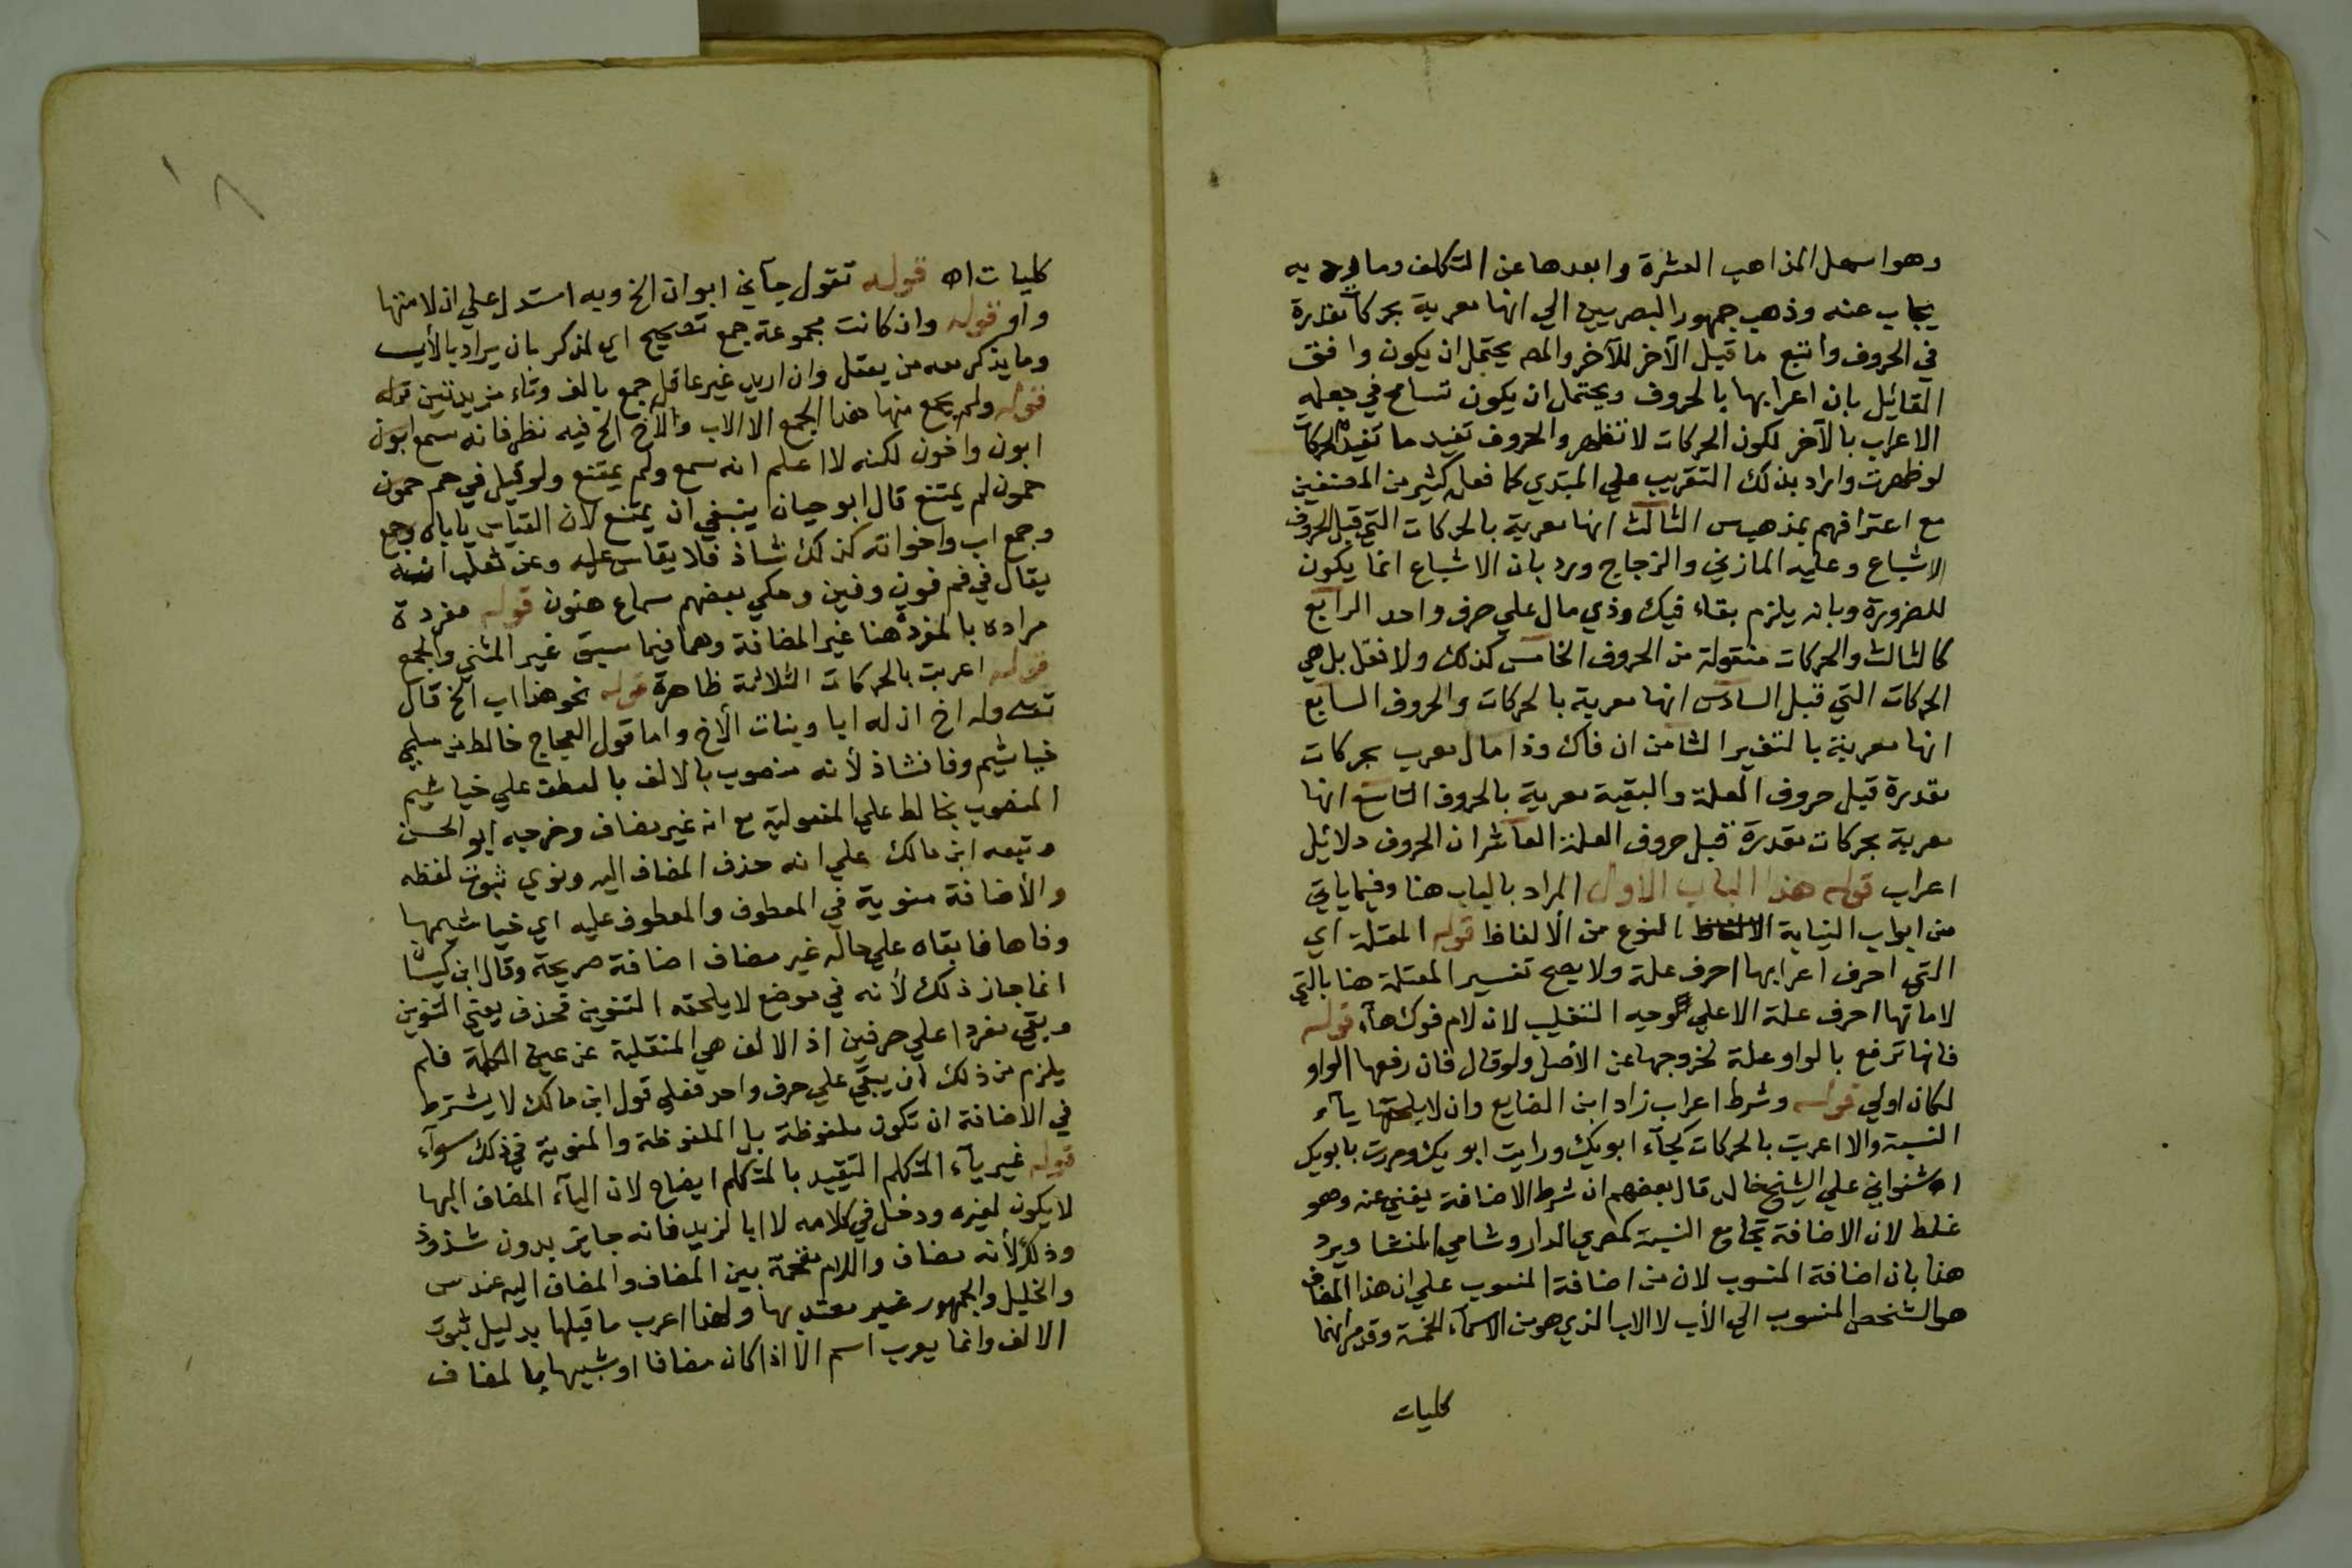 وهو اسهل المذاهب العشرة وابعدها عن التكلف وما به
يجاب عنه وذهب جمهور البصريين الي انها معربة بحركات مقدرة
في الحروف واتبع ما قبل الآخر للآخر والمص يحتمل ان يكون وافق
القائل بان اعرابها بالحروف ويحتمل ان يكون تسامح في جعله
الاعراب بالآخر لكون الحركات لا تظهر والحروف تفيد ما تفيده الحركات
لو ظهرت واراد بذلك التقريب علي المبتدي كما فعل كثير من المصنفين
مع اعترافهم بمذهب س الثالث انها معربة بالحركات التي قبل الحروف
الاشباع وعليه المازني والزجاج ورد بان الاشباع انما يكون
للضرورة وبانه يلزم بقاء فيك وذي مال علي حرف واحد الرابع
كالثالث والحركات منقولة من الحروف الخامس كذلك ولا نقل بل هي
الحركات التي قبل السادس انها معربة بالحركات والحروف السابع
انها معربة بالتغير الثامن ان فاك وذا مال معرب بحركات
مقدرة قبل حروف العلة والبقية معربة بالحروف التاسع انها
معربة بحركات مقدرة قبل حروف العلة العاشر ان الحروف دلائل
اعراب قوله هذا الباب الاول المراد بالباب هنا وفيما ياتي
من ابواب النيابة النوع من الألفاظ قوله المعتلة اي
التي احرف اعرابها احرف علة ولا يصح تفسير المعتلة هنا بالتي
لاماتها احرف علة الا علي وجه التغليب لان لام فوك هآء قوله
فانها ترفع بالواو علة لخروجها عن الأصل ولو قال فان رفعها الواو
لكان اولي قوله وشرط اعراب زاد ابن الضايع وان لا يلحقها يآء
النسبة والا اعربت بالحركات كجآء ابويك ورايت ابويك ومررت بابويك
اه شنواني علي الشيخ خالد قال بعضهم ان شرط الاضافة يغني عنه وهو
غلط لان الاضافة تجامع النسبة كمصري الدار وشامي المنشا ويرد
هذا بان اضافة المنسوب لان من اضافة المنسوب علي ان هذا المضاف
هو الشخص المنسوب الي الأب لا الاب الذي هو من الاسمآء الخمسة وقد مر انها
كليات
كليات اه قوله تقول جآني ابوان الخ وبه استدل علي ان لامتها
واو قوله وان كانت مجموعة جمع تصحيح اي لمذكر بان يراد بالأب
وما يذكر معه من يعقل وان اريد غير عاقل جمع بالف وتاء مزيدتين قوله
قوله ولم يجمع منها هذا الجمع الا الاب والأخ الخ فيه نظر فانه سمع ابون
ابون واخون لكنه لا اعلم انه سمع ولم يمتنع ولو قيل في حم حمون
حمون لم يمتنع قال ابو حيان ينبغي ان يمتنع لان القياس ياباه وجمع
وجمع اب واخواته كذلك شاذ فلا يقاس عليه وعن ثعلب انه
يقال في فم فون وفين وحكي بعضهم سماع هنون قوله مفردة
مراده بالمفردة هنا غير المضافة وهما فيما سبق غير المثني والجمع
قوله اعربت بالحركات الثلاثة ظاهرة قوله نحو هذا اب الخ قال
تعـ وله اخ ان له ابا وبنات الأخ واما قول العجاج خالط من سلمي
خياشيم وفا فشاذ لأنه منصوب بالالف بالعطف علي خياشيم
المنصوب بخالط علي المفعولية مع انه غير مضاف وخرجه ابو الحسن
وتبعه ابن مالك علي انه حذف المضاف اليه ونوي ثبوت لفظه
والأضافة منوية في المعطوف والمعطوف عليه اي خياشيمها
وفاها فابقاه علي حاله غير مضاف اضافة صريحة وقال ابن كيسان
انما جاز ذلك لأنه في موضع لا يلحقه التنوين فحذف يعني التنوين
وبقي مفردا علي حرفين اذ الالف هي المنقلبة عن عين الكلمة فلم
يلزم من ذلك ان يبقي علي حرف واحد فعلي قول ابن مالك لا يشترط
في الاضافة ان تكون ملفوظة بل الملفوظة والمنوية في ذلك سوآء
قوله غير يآء المتكلم التقييد بالمتكلم ايضاح لان اليآء المضاف اليها
لا يكون لغيره ودخل في كلامه لا ابا لزيد فانه جايز بدون شذوذ
وذلك لأنه مضاف واللام مقحمة بين المضاف والمضاف اليه عند س
والخليل والجمهور غير معتد بها ولهذا اعرب ما قبلها بدليل ثبوت
الالف وانما يعرب اسم لا اذا كان مضافا او شبيها بالمضاف